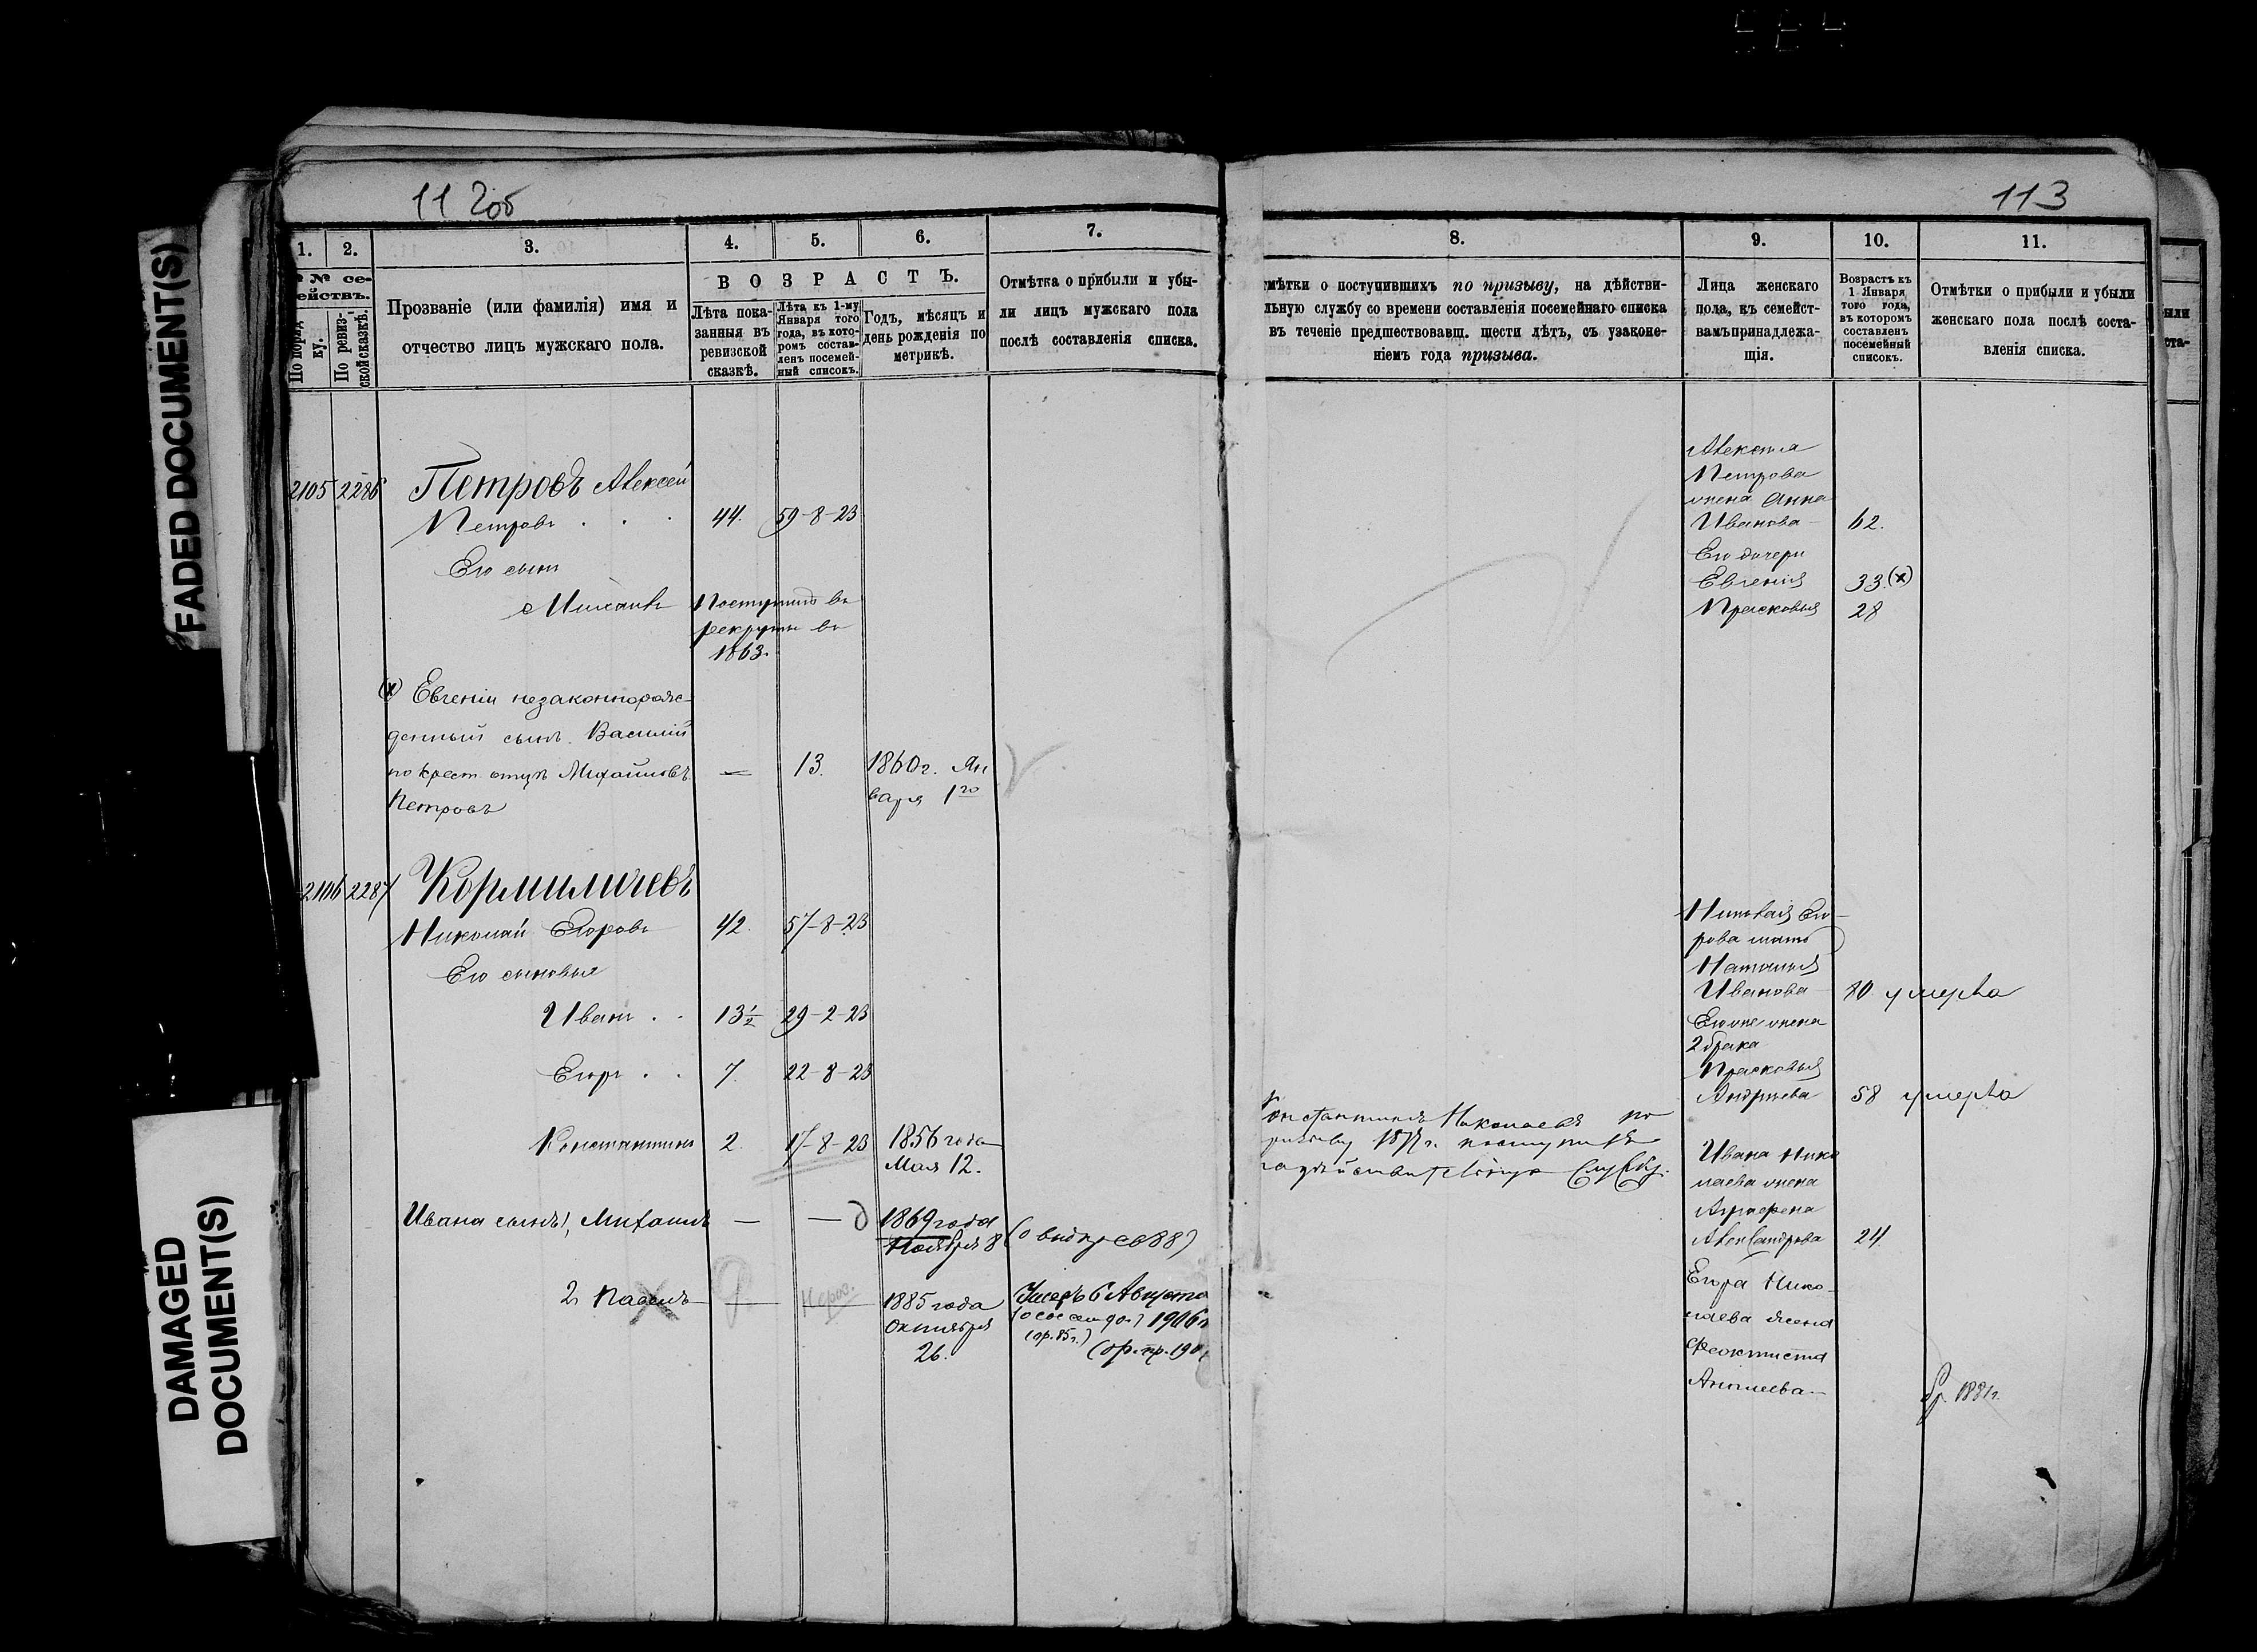 112об
113
FADED DOCUMENT(S)
DAMAGED
DOCUMENT(S)
1.
2.
3.
4.
5.
6.
7.
№ се-
ействъ.
По поряд
ку.
По ревиз-
ской сказкѣ.
Прозваніе (или фамилія) имя и
отчество лицъ мужскаго пола.
ВОЗРАСТЪ.
Лѣта пока-
занныя въ
ревизской
сказкѣ.
Лѣта къ 1-му
Января того
года, въ кото-
ромъ состав-
ленъ посемей-
ный списокъ.
Годъ, мѣсяцъ и
день рожденія по
метрикѣ.
Отмѣтка о прибыли и убы-
ли лицъ мужскаго пола
послѣ составленія списка.
2105 2286 Петровъ Алексей
Петровъ . . . 44. 59-8-23
Его сынъ
Михаилъ Поступилъ въ
рекруты въ
1863.
(х) Евгеніи незаконнорож-
денный сынъ Василій
по крест. отцу Михайловъ — 13. 1860г. Ян
Петровъ варя 1го
2106 2287 Кормиличевъ
Николай Егоровъ 42. 57-8-23
Его сыновья
Иванъ . . 13½ 29-2-23
Егоръ . . 7. 22-8-23
Константинъ 2. 17-8-23 1856 года
Мая 12.
Ивана сынъ 1, Михаилъ — — 1869 года
Ноября 8
2, Павелъ — — 1885 года Умеръ 6 Августа
Октября 1906
26. (ор. 85г.)
8.
9.
10.
11.
мѣтки о поступившихъ по призыву, на дѣйстви-
льную службу со времени составленія посемейнаго списка
въ теченіе предшествовавш. шести лѣтъ, съ узаконе-
ніемъ года призыва.
Лица женскаго
пола, къ семейст-
вамъ принадлежа-
щія.
Возрастъ къ
1 Января
того года,
въ которомъ
составленъ
посемейный
списокъ.
Отмѣтки о прибыли и убыли
женскаго пола послѣ соста-
вленія списка.
или
ста-
Алексѣя
Петрова
жена Анна
Иванова 62.
Его дочери
Евгенія 33.(х)
Прасковья 28
Николая Его-
рова мать
Наталья
Иванова 80 умерла
Его же жена
2 брака
Прасковья
Андреева 58 умерла
Константинъ Николаевъ по
призыву 1877г. поступилъ
на дѣйствительную службу.
Ивана Нико
лаева жена
Аграфена
Александрова 24.
Егора Нико-
лаева жена
Феоктиста
Бр. 1881г.